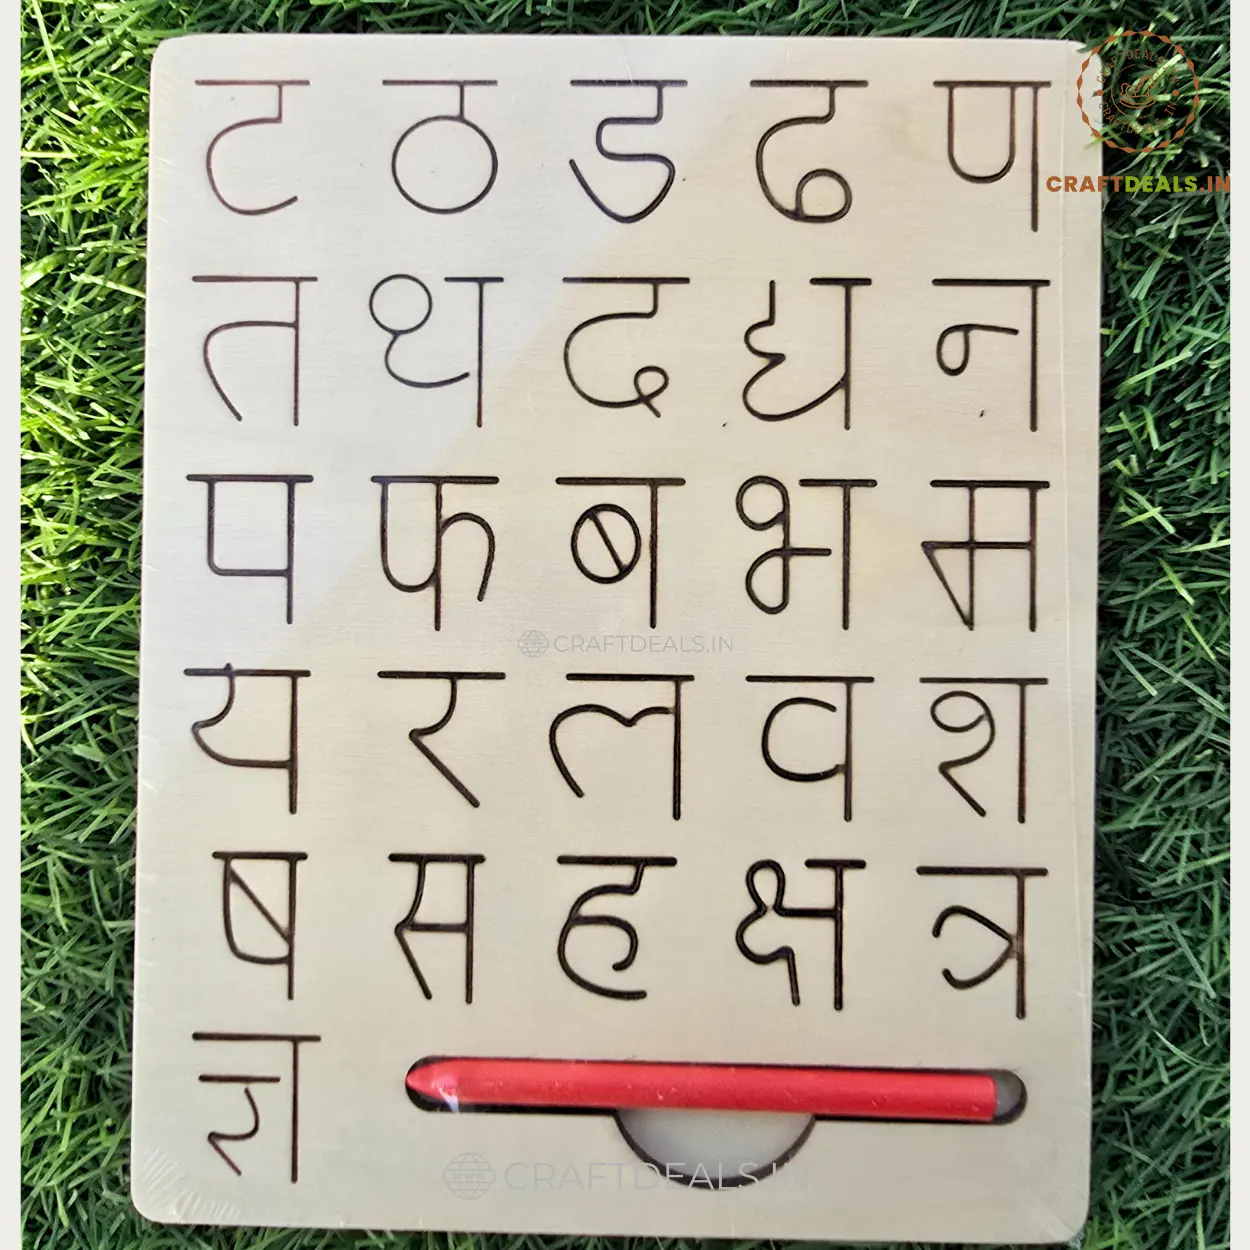 CRAFTDEALS.IN
ट ठ ड ढ ण
त थ द ध न
प फ ब भ म
CRAFTDEALS.IN
य र ल व श
ष स ह क्ष त्र
ज्ञ
CRAFTDEALS.IN